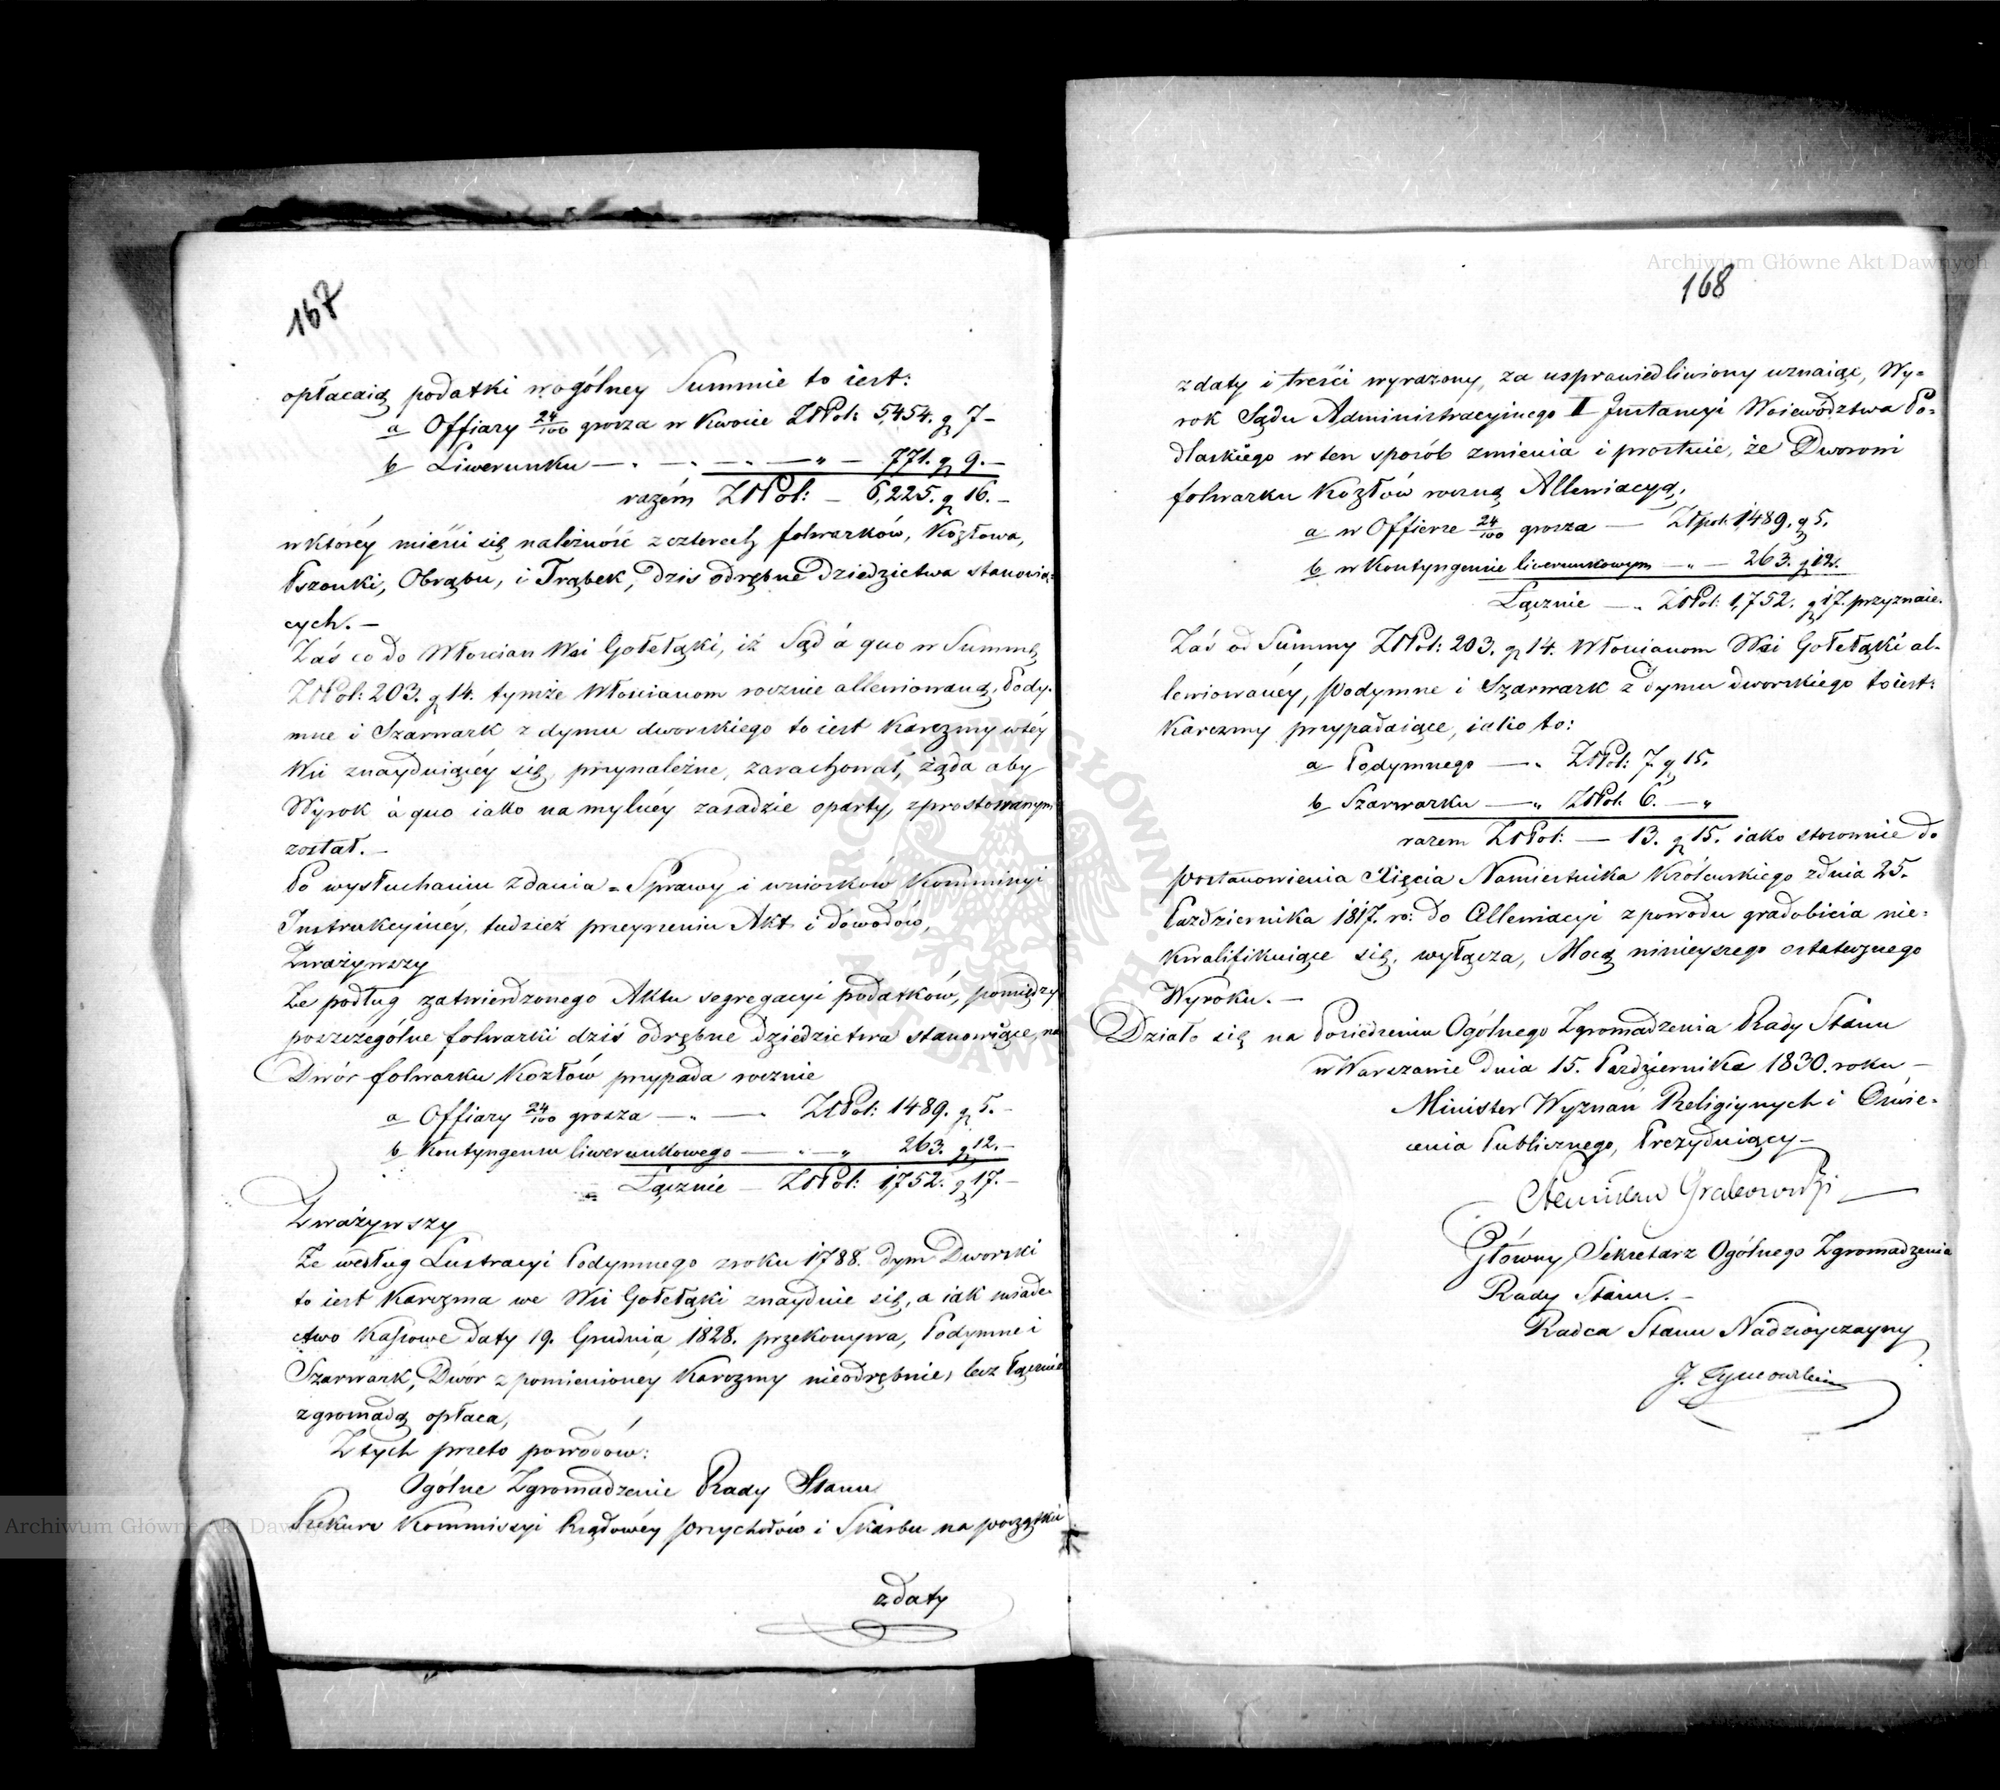 167
opłacaią podatki w ogólney Summie to iest:
a Offiary 24/100 grosza w kwocie ZłPol: 5,454. g 7 –
b Liwerunku — „ — „ — „ — 771. g 9. –
razém ZłPol: – 6,225. g 16. –
w którey mieści się należność z czterech folwarków, Kozłowa,
Pszonki, Obrąbu, i Trąbek, dziś odrębne Dziedzictwa stanowią-
cych. –
Zaś co do Włoscian Wsi Gołełąki, iż Sąd à quo w Summę
ZłPol: 203. g 14. tymże Włościanom rocznie allewiowaną, Pody-
mne i Szarwark z dymu dworskiego to iest Karczmy w téy
Wsi znayduiącéy się, przynależne, zarachował, żąda aby
Wyrok à quo iako na mylnéy zasadzie oparty, sprostowanym
został. –
Po wysłuchaniu zdania Sprawy i wniosków Kommissyi
Instrukcyinéy, tudzież przeyrzeniu Akt i dowodów,
Zważywszy
Że podług zatwierdzonego Aktu segregacyi podatków, pomiędzy
poszczególne folwarki dziś odrębne dziedzictwa stanowiące, na
Dwór folwarku Kozłów przypada rocznie
a Offiary 24/100 grosza — „ — ZłPol: 1489. g 5. –
b Kontyngensu liwerunkowego — „ — „ 263. g 12. –
Łącznie – ZłPol: 1752. g 17. –
Zważywszy
Że według Lustracyi Podymnego z roku 1788. dym Dworski
to iest Karczma we Wsi Gołełąki znayduie się, a iak świade-
ctwo Kassowe daty 19. Grudnia 1828. przekonywa, Podymne i
Szarwark, Dwór z pomienionéy Karczmy nieodrębnie, lecz łącznie
z gromadą opłaca,
Z tych przeto powodów:
Ogólne Zgromadzenie Rady Stanu
Rekurs Kommissyi Rządowéy Przychodów i Skarbu na początku
z daty
168
z daty i treści wyrażony, za usprawiedliwiony uznaiąc, Wy-
rok Sądu Administracyinego I Instancyi Woiewództwa Po-
dlaskiego w ten sposób zmienia i prostuie, że Dworowi
folwarku Kozłów roczną Allewiacyą,
a w Offierze 24/100 grosza — Złpol: 1489. g 5.
b w Kontyngensie liwerunkowym — „ — 263. g 12.
Łącznie — „ ZłPol: 1,752. g 17. przyznaie.
Zaś od Summy ZłPol: 203. g 14. Włościanom Wsi Gołełąki al-
lewiowanéy, Podymne i Szarwark z dymu dworskiego to iest:
Karczmy przypadaiące, iako to:
a Podymnego — „ ZłPol: 7 g 15.
b Szarwarku — „ ZłPol: 6. — „
razem ZłPol: — 13. g 15. iako stosownie do
Postanowienia Xięcia Namiestnika Królewskiego z dnia 25.
Października 1817. ro: do Allewiacyi z powodu gradobicia nie-
kwalifikuiące się, wyłącza, Mocą ninieyszego ostatecznego
Wyroku. –
Działo się na Posiedzeniu Ogólnego Zgromadzenia Rady Stanu
w Warszawie dnia 15. Października 1830. roku –
Minister Wyznań Religiynych i Oświe-
cenia Publicznego, Prezyduiący –
Stanisław Grabowski
Główny Sekretarz Ogólnego Zgromadzenia
Rady Stanu. –
Radca Stanu Nadzwyczayny
J. Tymowski
Archiwum Główne Akt Dawnych
Archiwum Główne Akt Dawnych
ARCHIWUM GŁÓWNE AKT DAWNYCH